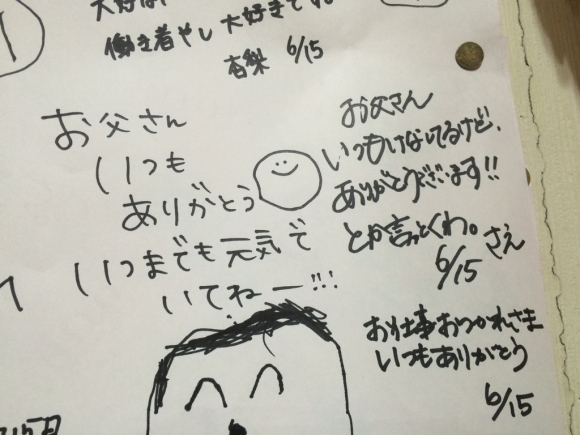 働き者やし 大好きです。
6/15
お父さん
いつも
ありがとう
いつまでも元気で
いてねー!!!
お父さん
いつもけなしてるけど、
ありがとうございます!!
とか言っとくわ。
6/15 さえ
お仕事おつかれさま
いつもありがとう
6/15